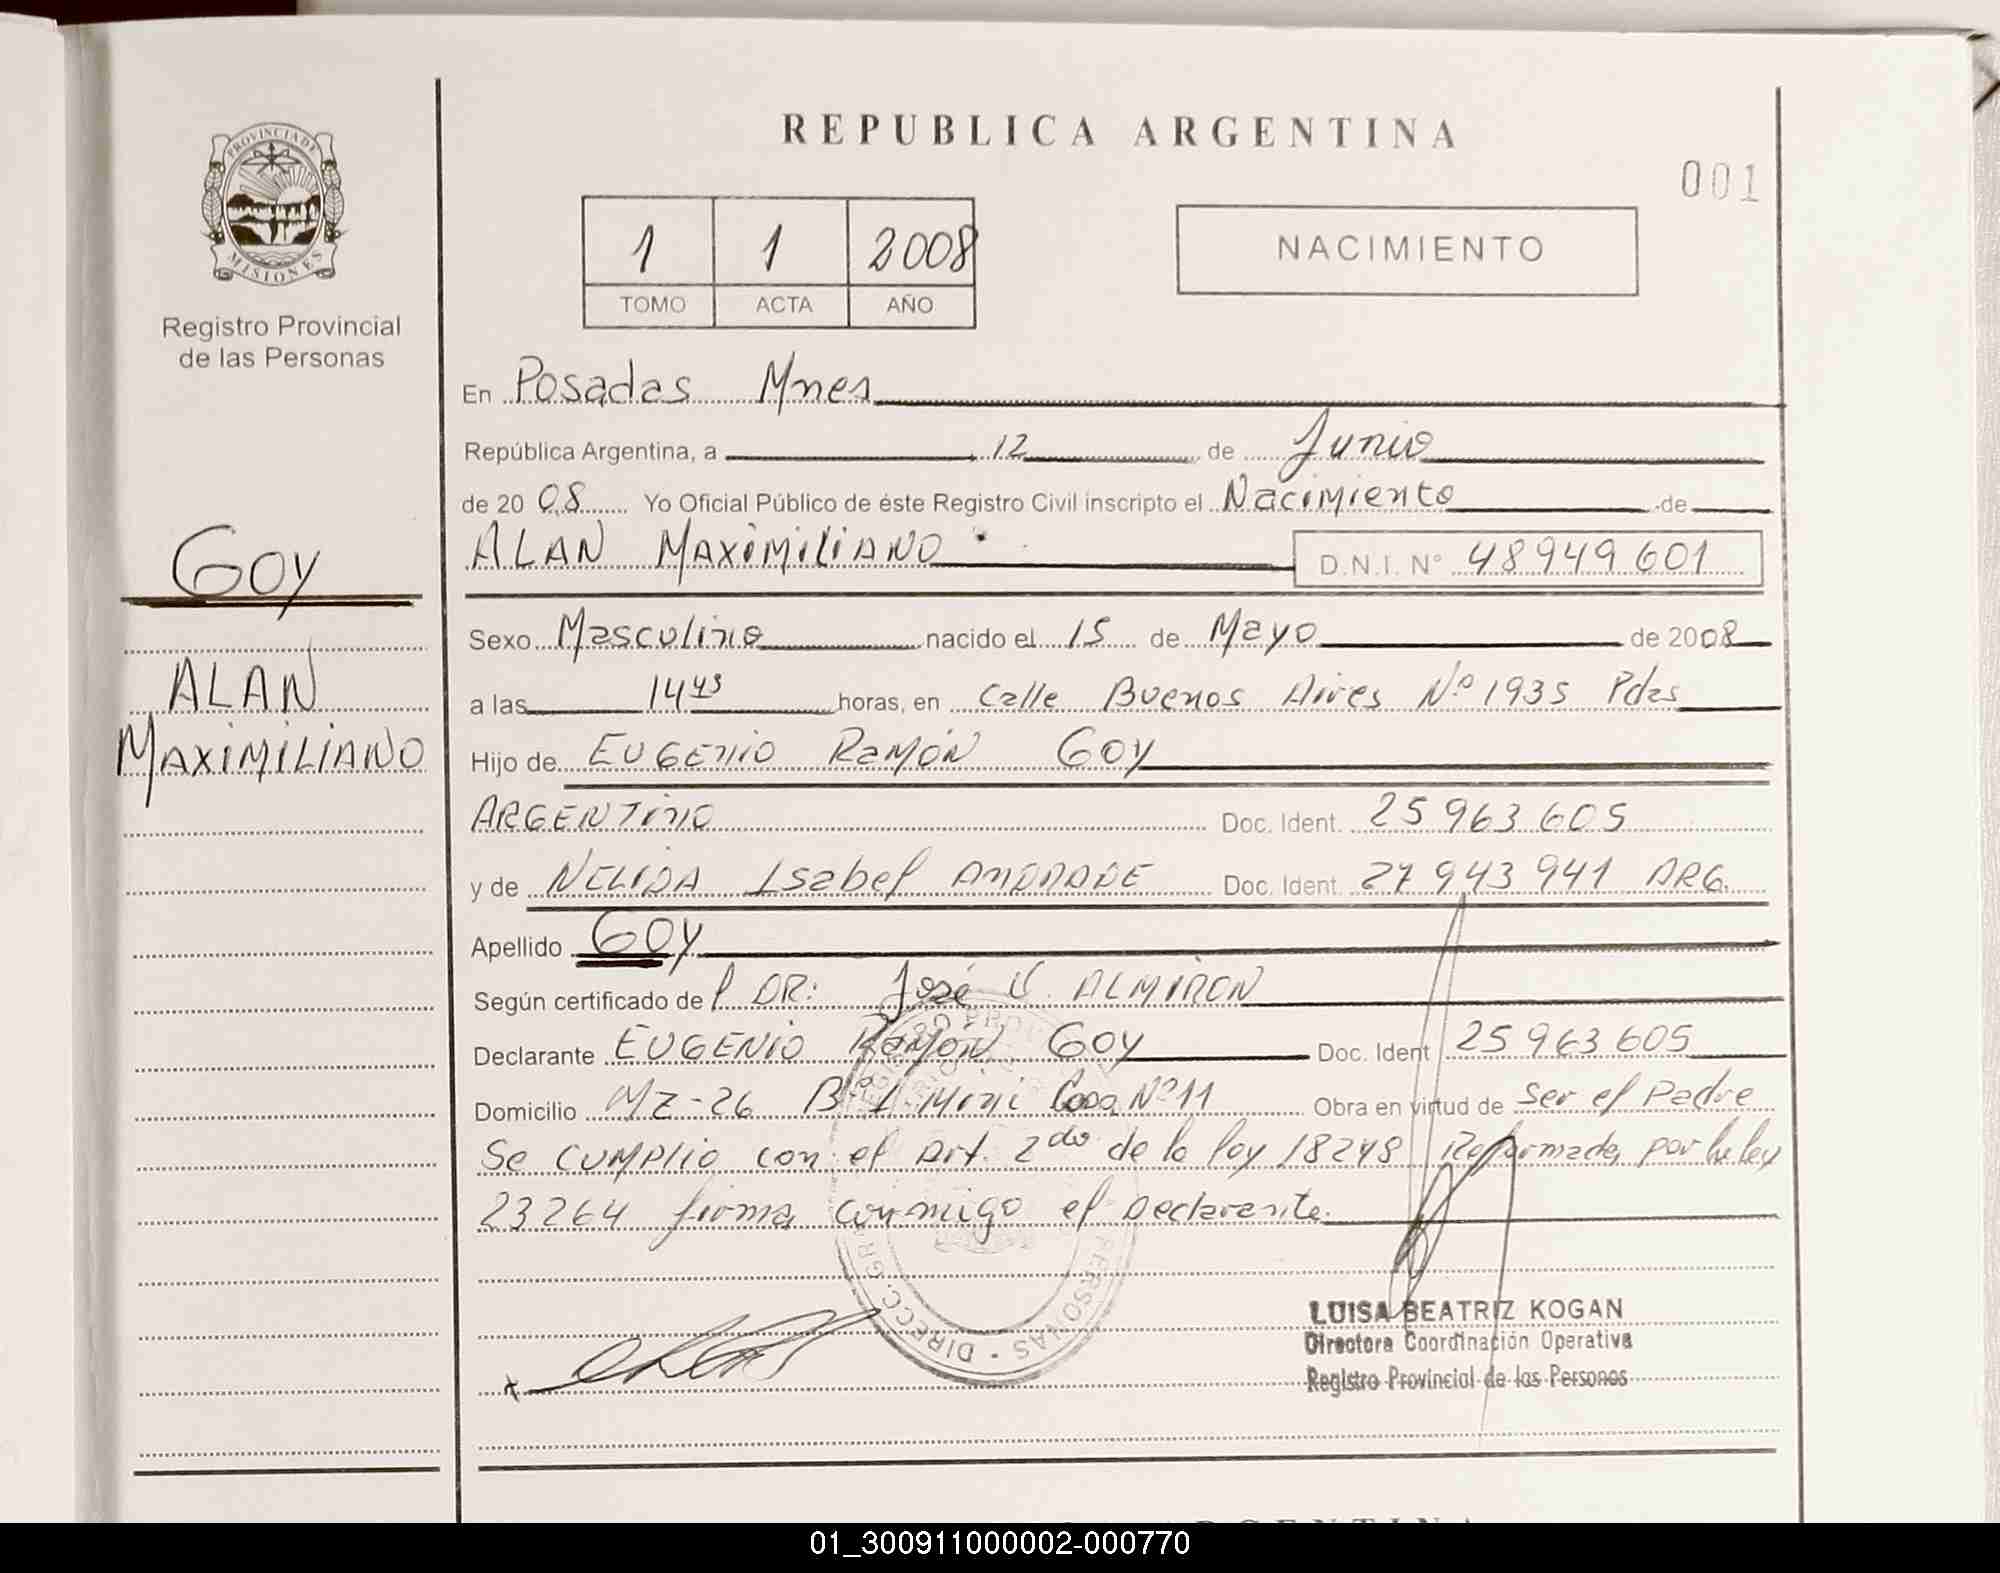 REPUBLICA ARGENTINA
001
PROVINCIA DE
MISIONES
Registro Provincial
de las Personas
1 1 2008
TOMO ACTA AÑO
NACIMIENTO
En Posadas Mnes
República Argentina, a 12 de Junio
de 2008 Yo Oficial Público de éste Registro Civil inscripto el Nacimiento de
ALAN MAXIMILIANO D.N.I. Nº 48949601
GOY
ALAN
MAXIMILIANO
Sexo Masculino nacido el 15 de Mayo de 2008
a las 14 45 horas, en Calle Buenos Aires Nº 1935 Pdas
Hijo de EUGENIO RAMÓN GOY
ARGENTINO Doc. Ident. 25963605
y de NELIDA Isabel ANDRADE Doc. Ident. 27943941 ARG.
Apellido GOY
Según certificado de P DR: José V. ALMIRON
Declarante EUGENIO RAMÓN GOY Doc. Ident 25963605
Domicilio MZ-26 Bº 1 Mini Casa Nº 11 Obra en virtud de Ser el Padre
Se cumplio con el Art. 2do de la ley 18248 Reformada por la ley
23264 firma conmigo el Declarante.
PERSONAS - DIRECC. GRAL
LUISA BEATRIZ KOGAN
Directora Coordinación Operativa
Registro Provincial de las Personas
01_300911000002-000770